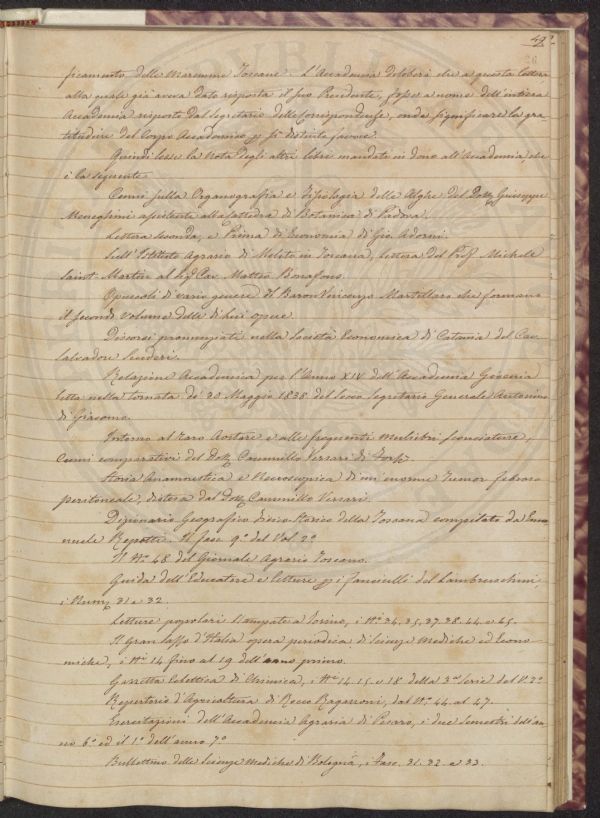 49
26
ficamento delle Maremme Toscane. L'Accademia deliberò che a questa lettera
alla quale già aveva dato risposta il suo Presidente, fosse a nome dell'intiera
Accademia risposto dal Segretario delle Corrispondenze, onde significare la gra-
titudine del Corpo Accademico p si distinto favore.
Quindi lesse la nota degli altri libri mandati in dono all'Accademia, che
è la seguente
Cenni sulla Organografia e Fisiologia delle Alghe del Dott Giuseppe
Meneghini assistente alla Cattedra di Botanica di Padova.
Lettera seconda, e Prima di Economia di Gio. Adorni.
Sull'Istituto Agrario di Meleto in Toscana, lettera del Prof. Michele
Saint Martin al Sig Cav. Matteo Bonafous.
Opuscoli di vario genere di Baron Vincenzo Mortillaro che formano
il secondo Volume delle di lui opere.
Discorsi pronunziati nella Società Economica di Catania del Cav.
Salvadore Scuderi.
Relazione Accademica per l'Anno XIV dell'Accademia Gioenia
letta nella tornata de' 30 Maggio 1838 del Socio Segretario Generale Antonino
di Giacomo.
Intorno al raro Aostore e alle frequenti muliebri sconciature,
Cenni comparativi del Dott Cammillo Versari di Forlì
Storia Anamnestica e Necroscopica di un enorme Tumor fibroso
peritoneale, distesa dal Dott Cammillo Versari.
Dizionario Geografico fisico Storico della Toscana compilato da Ema
nuele Repetti. Il fasc 9º del Vol. 2º
Il Nº 48 del Giornale Agrario Toscano.
Guida dell'Educatore e letture p i fanciulli del Lambruschini
i Num 31 e 32.
Letture popolari stampate a Torino, i Nº 34. 35. 37. 38. 44. e 45.
Il Gran Sasso d'Italia opera periodica di Scienze Mediche ed Econo-
miche, i Nº 14 fino al 19 dell'anno primo.
Gazzetta Eclettica di Chimica, i Nº 14. 15. e 18 della 3ª Serie del V. 3º
Repertorio d'Agricoltura di Rocco Ragazzoni, dal Nº 44. al 47.
Esercitazioni dell'Accademia Agraria di Pesaro, i due semestri dell'an
no 6º ed il 1º dell'anno 7º
Bullettino delle Scienze mediche di Bologna, i Fasc. 31. 32. e 33.